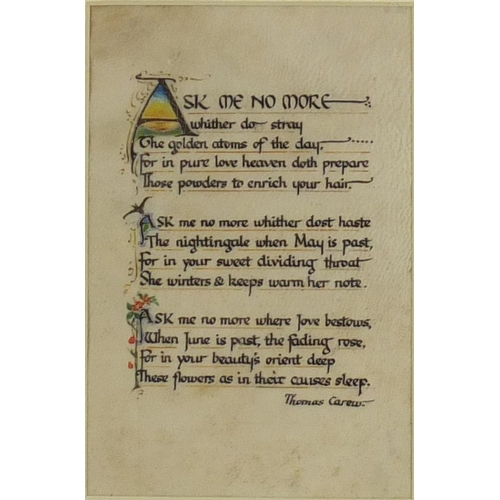 ASK ME NO MORE
whither do stray
The golden atoms of the day.
For in pure love heaven doth prepare
Those powders to enrich your hair.
ASK me no more whither dost haste
The nightingale when May is past,
for in your sweet dividing throat
She winters & keeps warm her note.
ASK me no more where Jove bestows,
When June is past, the fading rose,
For in your beauty's orient deep
These flowers as in their causes sleep.
Thomas Carew.